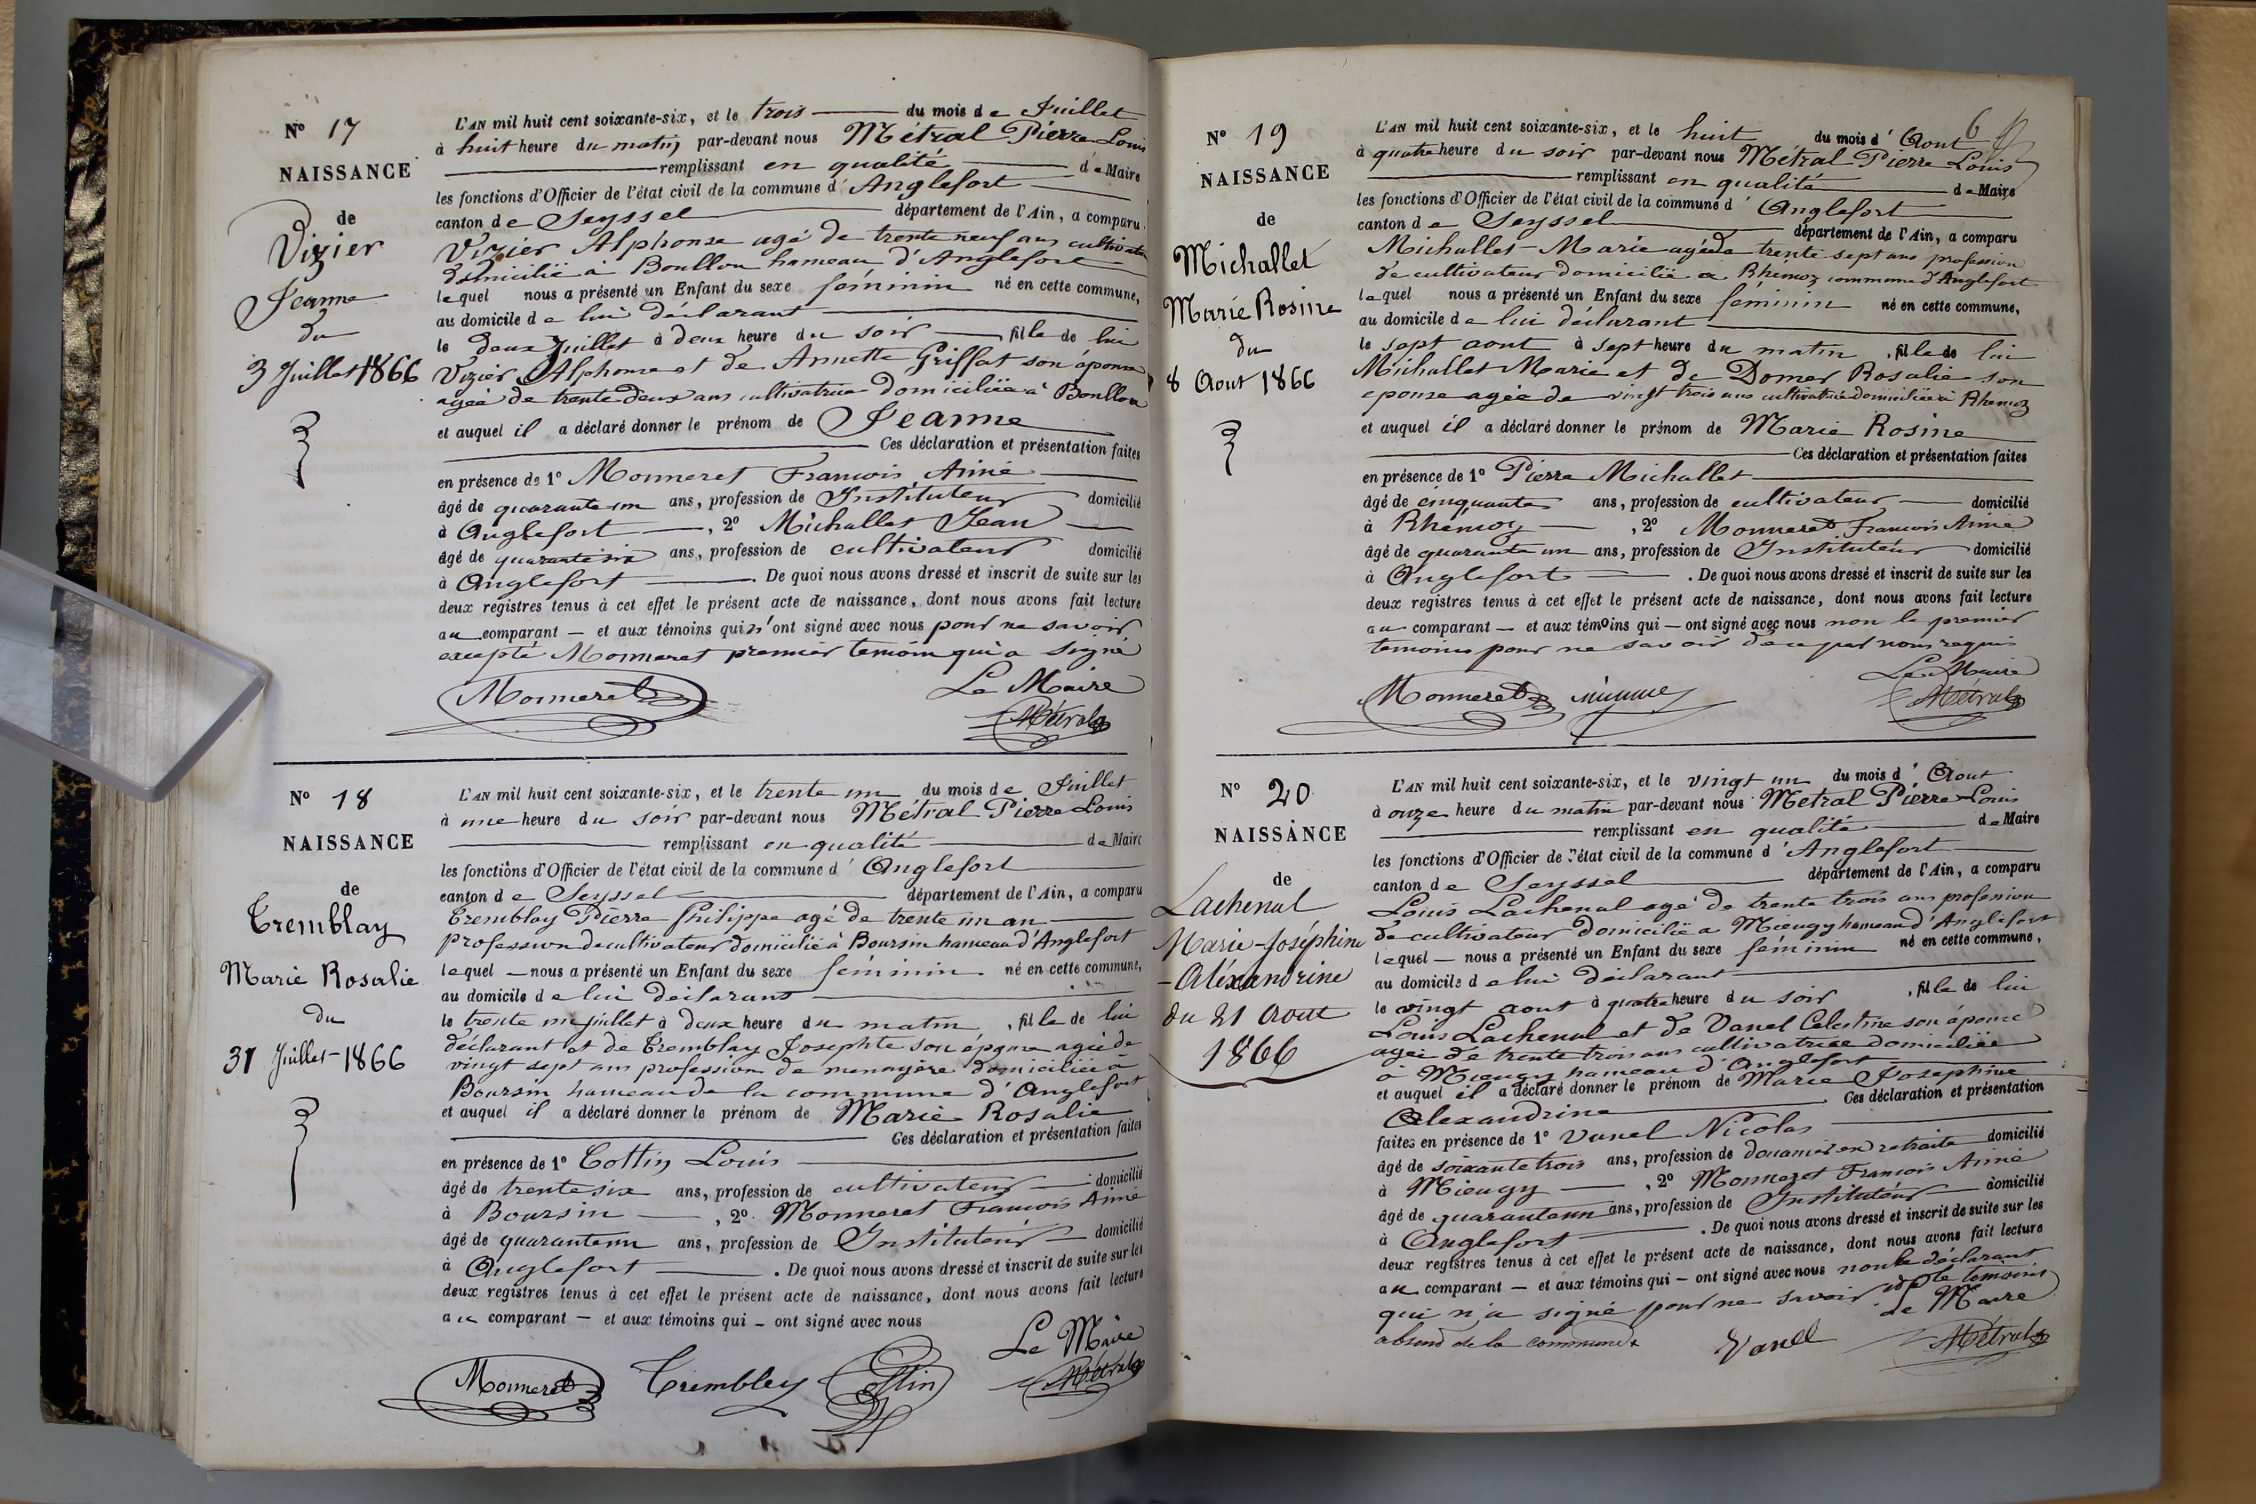 N° 17
NAISSANCE
de
Vizier
Jeanne
du
3 Juillet 1866
L'AN mil huit cent soixante-six, et le trois du mois de Juillet
à huit heure du matin par-devant nous Métral Pierre Louis
remplissant en qualité de Maire
les fonctions d'Officier de l'état civil de la commune d'Anglefort
canton de Seyssel département de l'Ain, a comparu
Vizier Alphonse agé de trente neuf ans cultivateur
domicilié à Boullon hameau d'Anglefort
lequel nous a présenté un Enfant du sexe féminin né en cette commune,
au domicile de lui déclarant
le deux Juillet à deux heure du soir fille de lui
Vizier Alphonse et de Annette Griffat son épouse
agée de trente deux ans cultivatrice domiciliée à Boullon
et auquel il a déclaré donner le prénom de Jeanne
Ces déclaration et présentation faites
en présence de 1° Monneret François Aimé
âgé de quarante un ans, profession de Instituteur domicilié
à Anglefort, 2° Michallet Jean
âgé de quarante six ans, profession de cultivateur domicilié
à Anglefort. De quoi nous avons dressé et inscrit de suite sur les
deux registres tenus à cet effet le présent acte de naissance, dont nous avons fait lecture
au comparant — et aux témoins qui n'ont signé avec nous pour ne savoir
excepté Monneret premier temoin qui a signé
Le Maire
Monneret Métral
N° 18
NAISSANCE
de
Tremblay
Marie Rosalie
du
31 Juillet 1866
L'AN mil huit cent soixante-six, et le trente un du mois de Juillet
à une heure du soir par-devant nous Métral Pierre Louis
remplissant en qualité de Maire
les fonctions d'Officier de l'état civil de la commune d'Anglefort
canton de Seyssel département de l'Ain, a comparu
Tremblay Pierre Philippe agé de trente un an
profession de cultivateur domicilié à Boursin hameau d'Anglefort
lequel — nous a présenté un Enfant du sexe féminin né en cette commune,
au domicile de lui déclarant
le trente un juillet à deux heure du matin, fille de lui
déclarant et de Tremblay Josephte son épouse agée de
vingt sept ans profession de menagère domiciliée à
Boursin hameau de la commune d'Anglefort
et auquel il a déclaré donner le prénom de Marie Rosalie
Ces déclaration et présentation faites
en présence de 1° Cottin Louis
âgé de trente six ans, profession de cultivateur domicilié
à Boursin, 2° Monneret François Aimé
âgé de quarante un ans, profession de Instituteur domicilié
à Anglefort. De quoi nous avons dressé et inscrit de suite sur les
deux registres tenus à cet effet le présent acte de naissance, dont nous avons fait lecture
au comparant — et aux témoins qui — ont signé avec nous
Le Maire
Monneret Trembley Cottin Métral
6
N° 19
NAISSANCE
de
Michallet
Marie Rosine
du
8 Aout 1866
L'AN mil huit cent soixante-six, et le huit du mois d'Aout
à quatre heure du soir par-devant nous Métral Pierre Louis
remplissant en qualité de Maire
les fonctions d'Officier de l'état civil de la commune d'Anglefort
canton de Seyssel département de l'Ain, a comparu
Michallet Marie agé de trente sept ans profession
de cultivateur domicilié a Rhemoz commune d'Anglefort
lequel nous a présenté un Enfant du sexe féminin né en cette commune,
au domicile de lui déclarant
le sept aout à sept heure du matin, fille de lui
Michallet Marie et de Domer Rosalie son
epouse agée de vingt trois ans cultivatrice domiciliée à Rhemoz
et auquel il a déclaré donner le prénom de Marie Rosine
Ces déclaration et présentation faites
en présence de 1° Pierre Michallet
âgé de cinquante ans, profession de cultivateur domicilié
à Rhemoz, 2° Monneret François Aimé
âgé de quarante un ans, profession de Instituteur domicilié
à Anglefort. De quoi nous avons dressé et inscrit de suite sur les
deux registres tenus à cet effet le présent acte de naissance, dont nous avons fait lecture
au comparant — et aux témoins qui — ont signé avec nous non le premier
temoins pour ne savoir de ce par nous requis
Le Maire
Monneret Métral
N° 20
NAISSANCE
de
Lachenal
Marie-Joséphine
-Aléxandrine
du 21 Aout
1866
L'AN mil huit cent soixante-six, et le vingt un du mois d'Aout
à onze heure du matin par-devant nous Metral Pierre Louis
remplissant en qualité de Maire
les fonctions d'Officier de l'état civil de la commune d'Anglefort
canton de Seyssel département de l'Ain, a comparu
Louis Lachenal agé de trente trois ans profession
de cultivateur domicilié a Mieugy hameau d'Anglefort
lequel — nous a présenté un Enfant du sexe féminin né en cette commune,
au domicile de lui déclarant
le vingt aout à quatre heure du soir, fille de lui
Louis Lachenal et de Vanel Celestine son épouse
agée de trente trois ans cultivatrice domiciliée
à Mieugy hameau d'Anglefort
et auquel il a déclaré donner le prénom de Marie Josephine
Alexandrine Ces déclaration et présentation
faites en présence de 1° Vanel Nicolas
âgé de soixante trois ans, profession de douanier en retraite domicilié
à Mieugy, 2° Monneret François Aimé
âgé de quarante un ans, profession de Instituteur domicilié
à Anglefort. De quoi nous avons dressé et inscrit de suite sur les
deux registres tenus à cet effet le présent acte de naissance, dont nous avons fait lecture
au comparant — et aux témoins qui — ont signé avec nous non le déclarant
qui n'a signé pour ne savoir le temoins
absend de la commune Le Maire
Vanel Métral